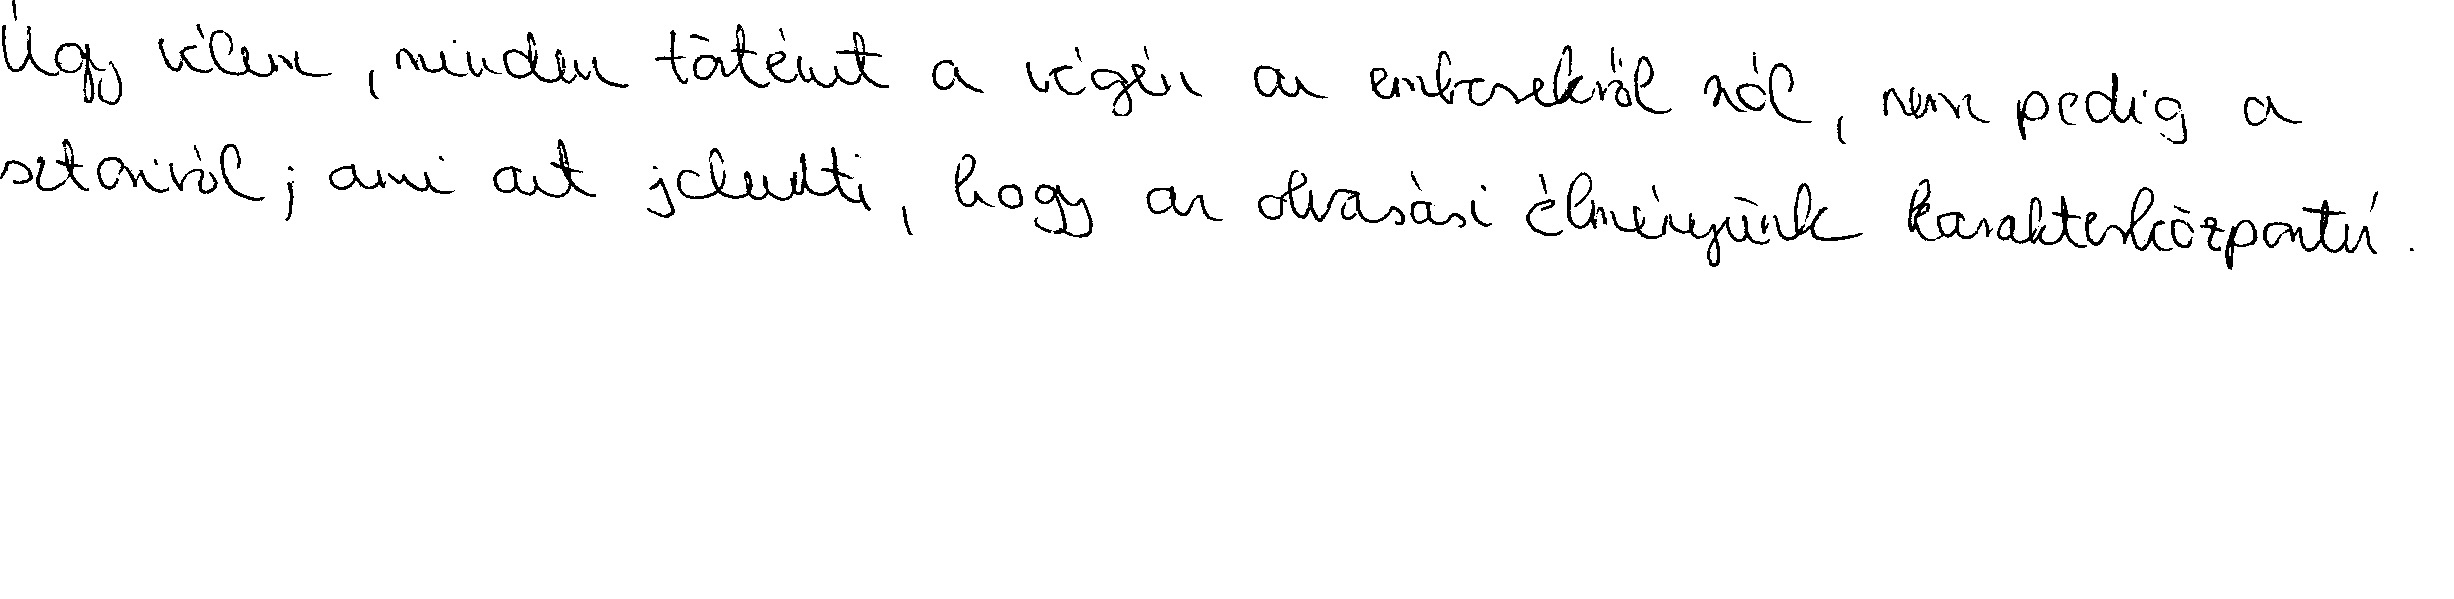 Úgy vélem, minden történet a végén az emberekről szól, nem pedig a
sztoriról; ami azt jelenti, hogy az olvasási élményünk karakterközpontú.